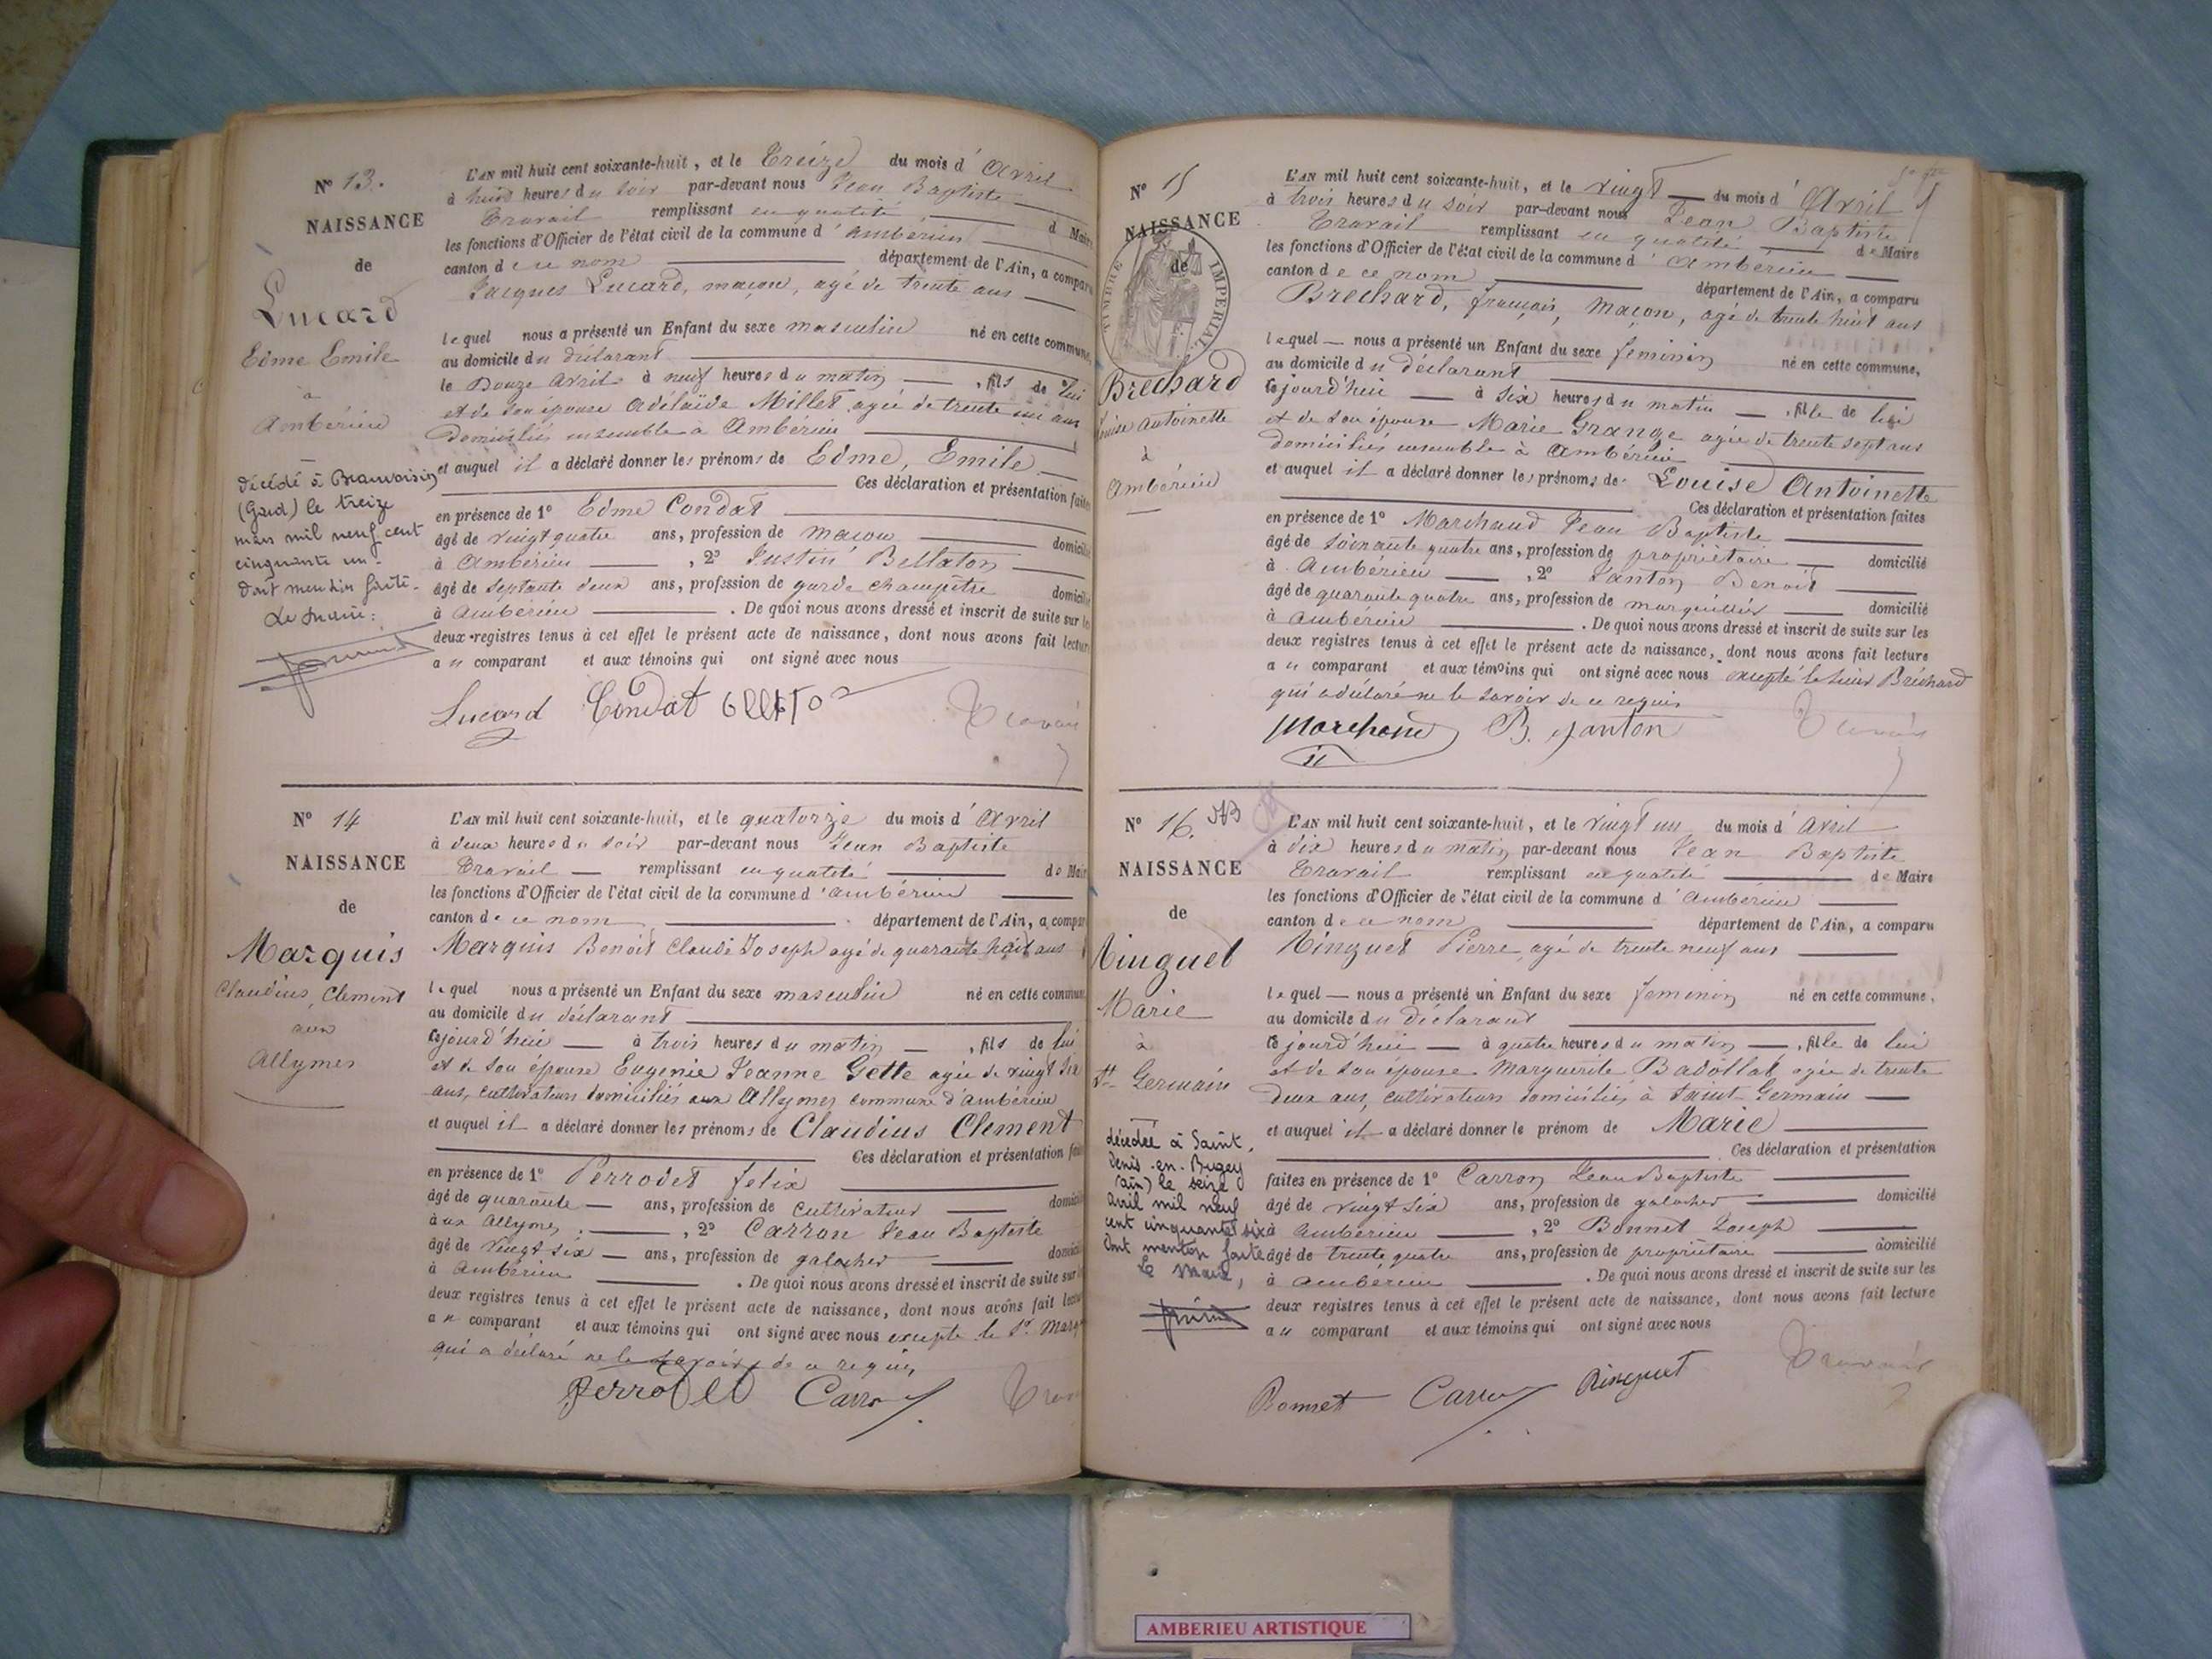 N° 13.
NAISSANCE
de
Lucard
Edme Emile
à
Ambérieu
décédé à Beauvoisin
(Gard) le treize
mars mil neuf cent
cinquante un.
Dont mention faite.
Le Maire:
L'AN mil huit cent soixante-huit, et le treize du mois d'Avril
à heures du soir par-devant nous Jean Baptiste
Travail remplissant en qualité de Maire
les fonctions d'Officier de l'état civil de la commune d'Ambérieu
canton de ce nom département de l'Ain, a comparu
Jacques Lucard, maçon, agé de trente ans
lequel nous a présenté un Enfant du sexe masculin né en cette commune,
au domicile du déclarant
le Douze Avril à neuf heures du matin, fils de lui
et de son épouse Adélaïde Millet agée de trente un ans
domiciliés ensemble à Ambérieu
et auquel il a déclaré donner les prénoms de Edme, Emile
Ces déclaration et présentation faites
en présence de 1° Edme Condat
âgé de vingt quatre ans, profession de maçon domicilié
à Ambérieu, 2° Justin Bellaton
âgé de septante deux ans, profession de garde champêtre domicilié
à Ambérieu. De quoi nous avons dressé et inscrit de suite sur les
deux registres tenus à cet effet le présent acte de naissance, dont nous avons fait lecture
au comparant et aux témoins qui ont signé avec nous
Lucard Condat
N° 14
NAISSANCE
de
Marquis
Claudius, Clement
aux
Allymes
L'AN mil huit cent soixante-huit, et le quatorze du mois d'Avril
à deux heures du soir par-devant nous Jean Baptiste
Travail remplissant en qualité de Maire
les fonctions d'Officier de l'état civil de la commune d'Ambérieu
canton de ce nom département de l'Ain, a comparu
Marquis Benoit Claude Joseph agé de quarante huit ans
lequel nous a présenté un Enfant du sexe masculin né en cette commune
au domicile du déclarant
cejourd'hui à trois heures du matin, fils de lui
et de son épouse Eugenie Jeanne Gette agée de vingt six
ans, cultivateurs domiciliés aux Allymes commune d'Ambérieu
et auquel il a déclaré donner les prénoms de Claudius Clement
Ces déclaration et présentation faites
en présence de 1° Perrodet felix
âgé de quarante ans, profession de cultivateur domicilié
à aux Allymes, 2° Carron Jean Baptiste
âgé de vingt six ans, profession de galocher domicilié
à Ambérieu. De quoi nous avons dressé et inscrit de suite sur les
deux registres tenus à cet effet le présent acte de naissance, dont nous avons fait lecture
au comparant et aux témoins qui ont signé avec nous excepté le Sr. Marquis
qui a déclaré ne le savoir de ce requis
Perrodet Carron
N° 15
NAISSANCE
de
TIMBRE IMPERIAL
Brechard
Louise Antoinette
à
Ambérieu
L'AN mil huit cent soixante-huit, et le vingt du mois d'Avril
à trois heures du soir par-devant nous Jean Baptiste
Travail remplissant en qualité de Maire
les fonctions d'Officier de l'état civil de la commune d'Ambérieu
canton de ce nom département de l'Ain, a comparu
Brechard, françois, maçon, agé de trente huit ans
lequel nous a présenté un Enfant du sexe feminin né en cette commune,
au domicile du déclarant
cejourd'hui à six heures du matin, fille de lui
et de son épouse Marie Grange agée de trente sept ans
domiciliés ensemble à Ambérieu
et auquel il a déclaré donner les prénoms de Louise Antoinette
Ces déclaration et présentation faites
en présence de 1° Marchand Jean Baptiste
âgé de soixante quatre ans, profession de propriétaire domicilié
à Ambérieu, 2° Janton Benoit
âgé de quarante quatre ans, profession de marguillier domicilié
à Ambérieu. De quoi nous avons dressé et inscrit de suite sur les
deux registres tenus à cet effet le présent acte de naissance, dont nous avons fait lecture
au comparant et aux témoins qui ont signé avec nous excepté le sieur Bréchard
qui a déclaré ne le savoir de ce requis
Marchand B. Janton
N° 16.
NAISSANCE
de
Ringuet
Marie
à
St Germain
décédée à Saint-
Denis-en-Bugey
(Ain) le seize
avril mil neuf
cent cinquante six
Dont mention faite
Le Maire,
L'AN mil huit cent soixante-huit, et le vingt un du mois d'Avril
à dix heures du matin par-devant nous Jean Baptiste
Travail remplissant en qualité de Maire
les fonctions d'Officier de l'état civil de la commune d'Ambérieu
canton de ce nom département de l'Ain, a comparu
Ringuet Pierre, agé de trente neuf ans
lequel nous a présenté un Enfant du sexe feminin né en cette commune,
au domicile du déclarant
cejourd'hui à quatre heures du matin, fille de lui
et de son épouse Marguerite Badollat, agée de trente
deux ans, cultivateurs domiciliés à Saint Germain
et auquel il a déclaré donner le prénom de Marie
Ces déclaration et présentation
faites en présence de 1° Carron Jean Baptiste
âgé de vingt six ans, profession de galocher domicilié
à Ambérieu, 2° Bonnet Joseph
âgé de trente quatre ans, profession de propriétaire domicilié
à Ambérieu. De quoi nous avons dressé et inscrit de suite sur les
deux registres tenus à cet effet le présent acte de naissance, dont nous avons fait lecture
au comparant et aux témoins qui ont signé avec nous
Bonnet Carron Ringuet
AMBERIEU ARTISTIQUE